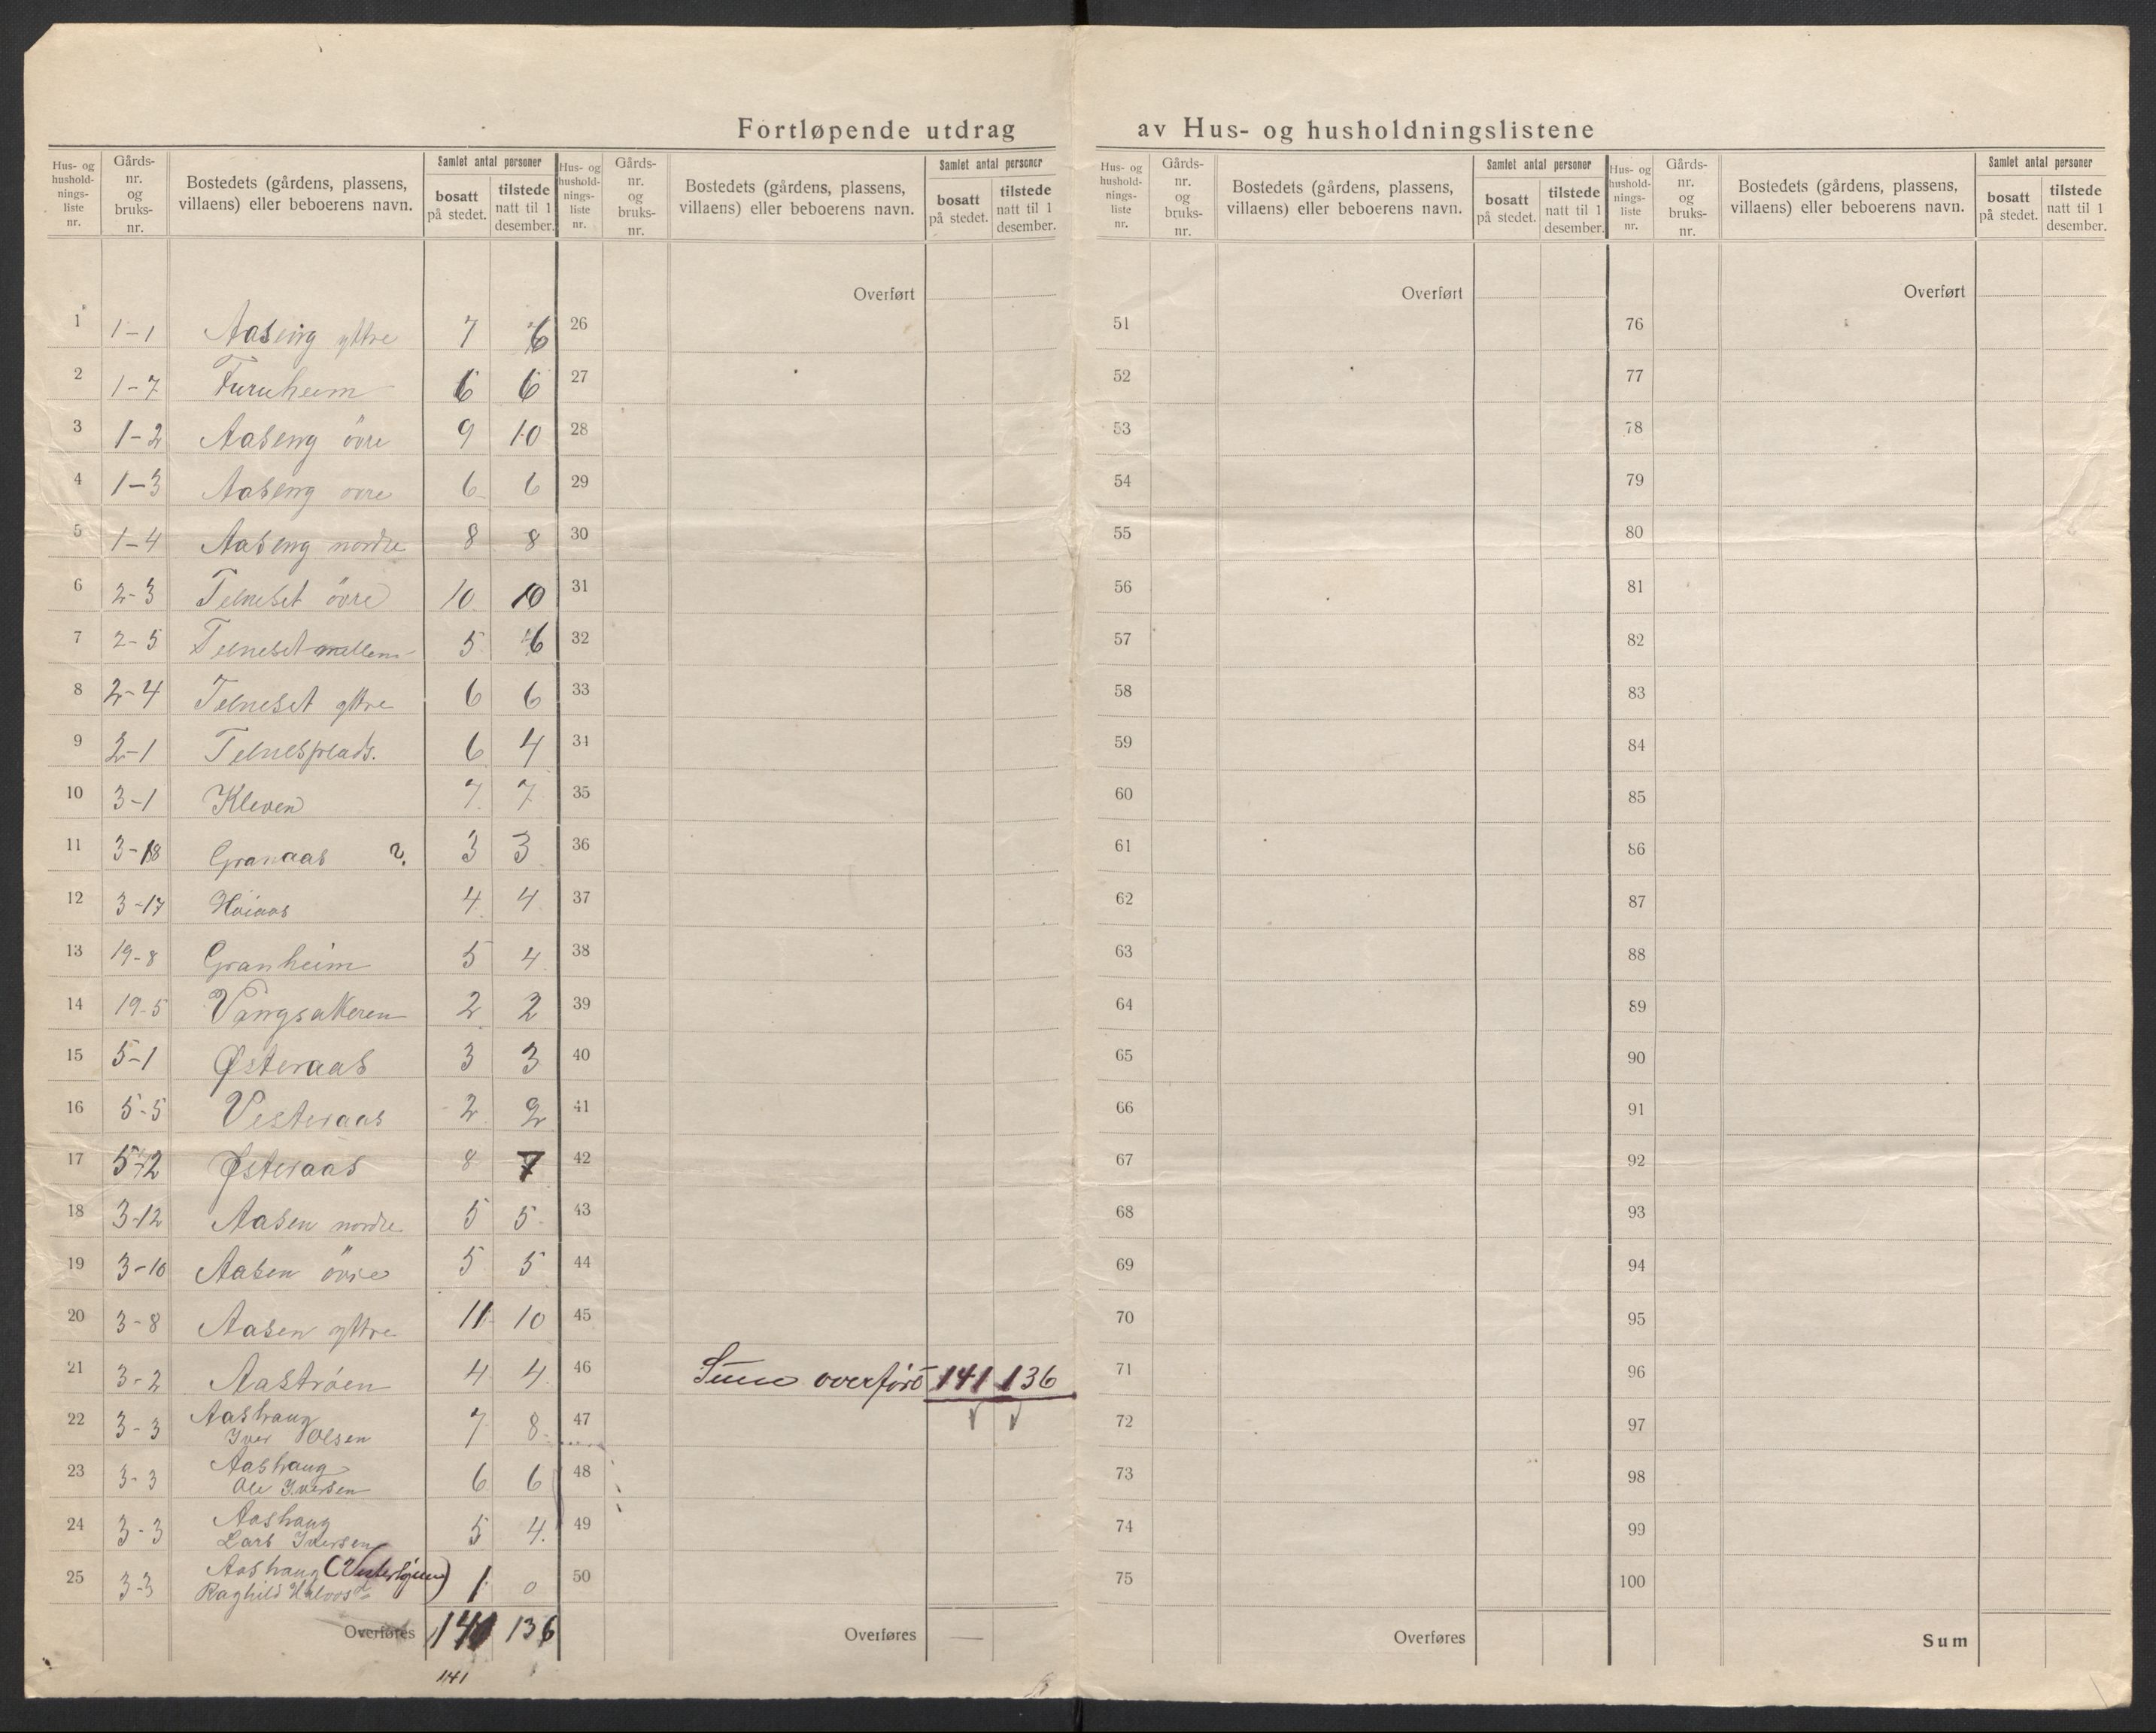 Fortløpende utdrag av Hus- og husholdningslistene
Hus- og husholdnings-liste nr. | Gårds-nr. og bruks-nr. | Bostedets (gårdens, plassens, villaens) eller beboerens navn. | Samlet antal personer | bosatt på stedet. | tilstede natt til 1 desember.
1 1-1 Aaseng yttre 7 6
2 1-7 Furuheim 6 6
3 1-2 Aaseng övre 9 10
4 1-3 Aaseng ovre 6 6
5 1-4 Aaseng nordre 8 8
6 2-3 Telneset övre 10 10
7 2-5 Telneset mellem 5 6
8 2-4 Telneset yttre 6 6
9 2-1 Telnesplads. 6 4
10 3-1 Kleven 7 7
11 3-18 Granaas ?. 3 3
12 3-17 Höiaas 4 4
13 19-8 Granheim 5 4
14 19-5 Vangsakeren 2 2
15 5-1 Østeraas 3 3
16 5-5 Vesteraas 2 2
17 5-2 Østeraas 8 7
18 3-12 Aasen nordre 5 5
19 3-10 Aasen övre 5 5
20 3-8 Aasen yttre 11 10
21 3-2 Aastrøen 4 4
22 3-3 Aashaug
Iver Olsen 7 8
23 3-3 Aashaug
Ole Iversen 6 6
24 3-3 Aashaug
Lars Iversen 5 4.
25 3-3 Aashaug
Raghild 1 0
Overføres 141 136
141
Hus- og husholdnings-liste nr. | Gårds-nr. og bruks-nr. | Bostedets (gårdens, plassens, villaens) eller beboerens navn. | Samlet antal personer | bosatt på stedet. | tilstede natt til 1 desember.
Overført
26
27
28
29
30
31
32
33
34
35
36
37
38
39
40
41
42
43
44
45
46 Sum overført 141 136
47
48
49
50
Overføres —
Hus- og husholdnings-liste nr. | Gårds-nr. og bruks-nr. | Bostedets (gårdens, plassens, villaens) eller beboerens navn. | Samlet antal personer | bosatt på stedet. | tilstede natt til 1 desember.
Overført
51
52
53
54
55
56
57
58
59
60
61
62
63
64
65
66
67
68
69
70
71
72
73
74
75
Overføres
Hus- og husholdnings-liste nr. | Gårds-nr. og bruks-nr. | Bostedets (gårdens, plassens, villaens) eller beboerens navn. | Samlet antal personer | bosatt på stedet. | tilstede natt til 1 desember.
Overført
76
77
78
79
80
81
82
83
84
85
86
87
88
89
90
91
92
93
94
95
96
97
98
99
100
Sum